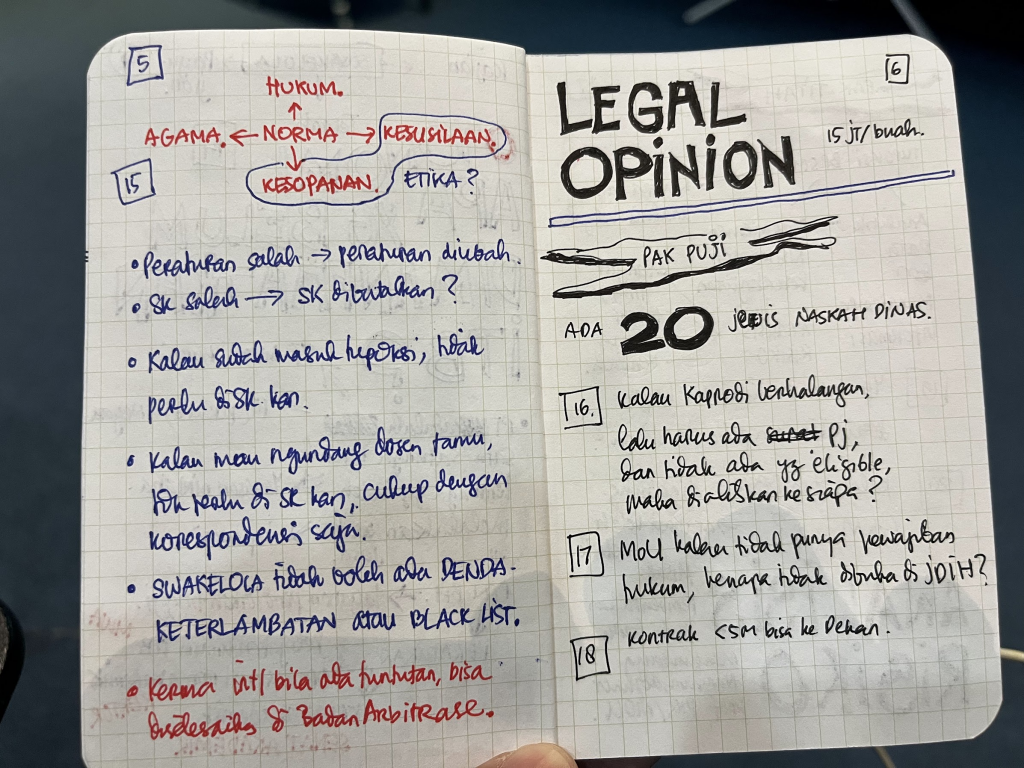 5
HUKUM.
AGAMA. ← NORMA → KESUSILAAN.
15
KESOPANAN. ETIKA?
• Peraturan salah → peraturan diubah.
• SK salah → SK dibatalkan?
• Kalau sudah masuk tupoksi, tidak
perlu diSK kan.
• Kalau mau ngundang dosen tamu,
tdk perlu di SK kan, cukup dengan
korespondensi saja.
• SWAKELOLA tidak boleh ada DENDA
KETERLAMBATAN atau BLACK LIST.
• Kerma int'l bila ada tuntutan, bisa
diselesaikn di Badan Arbitrase.
6
LEGAL
OPINION
15 jt/buah.
PAK PUJI
ADA 20 jenis NASKAH DINAS.
16. Kalau Kaprodi berhalangan,
lalu harus ada surat Pj,
dan tidak ada yg eligible,
maka dialihkan ke siapa?
17 MoU kalau tidak punya kewajiban
hukum, kenapa tidak dibuka di JDIH?
18 Kontrak <5M bisa ke Dekan.